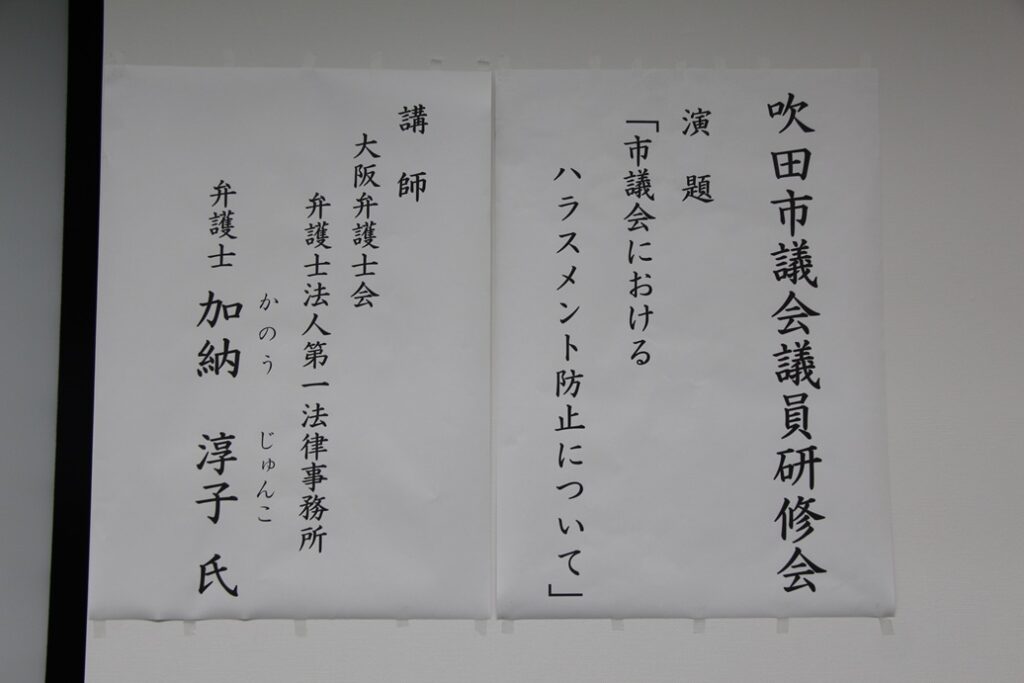 吹田市議会議員研修会
演題
「市議会における
ハラスメント防止について」
講師
大阪弁護士会
弁護士法人第一法律事務所
かのう じゅんこ
弁護士 加納 淳子 氏